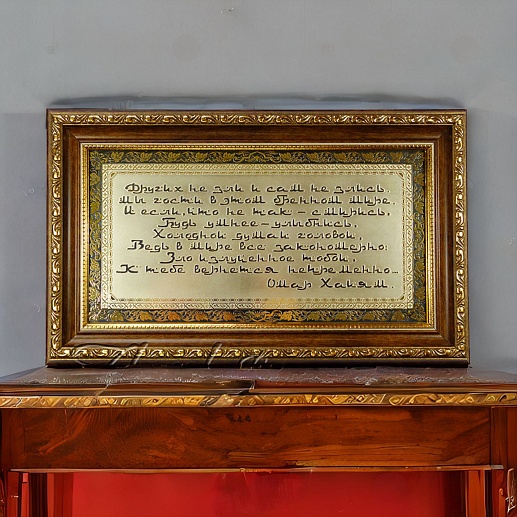 Других не зли и сам не злись,
Мы гости в этом бренном мире,
И если, что не так – смирись,
Будь умнее – улыбнись,
Холодной думай головой,
Ведь в мире все закономерно:
Зло излученное тобой,
К тебе вернется непременно...
Омар Хайям.